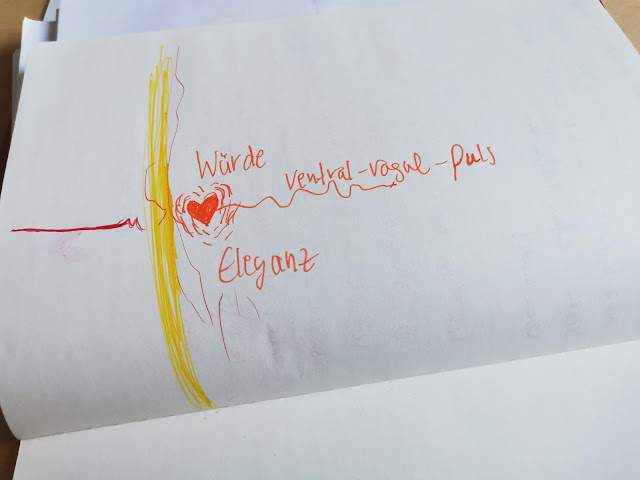 Würde
ventral-vague-Puls
Eleganz